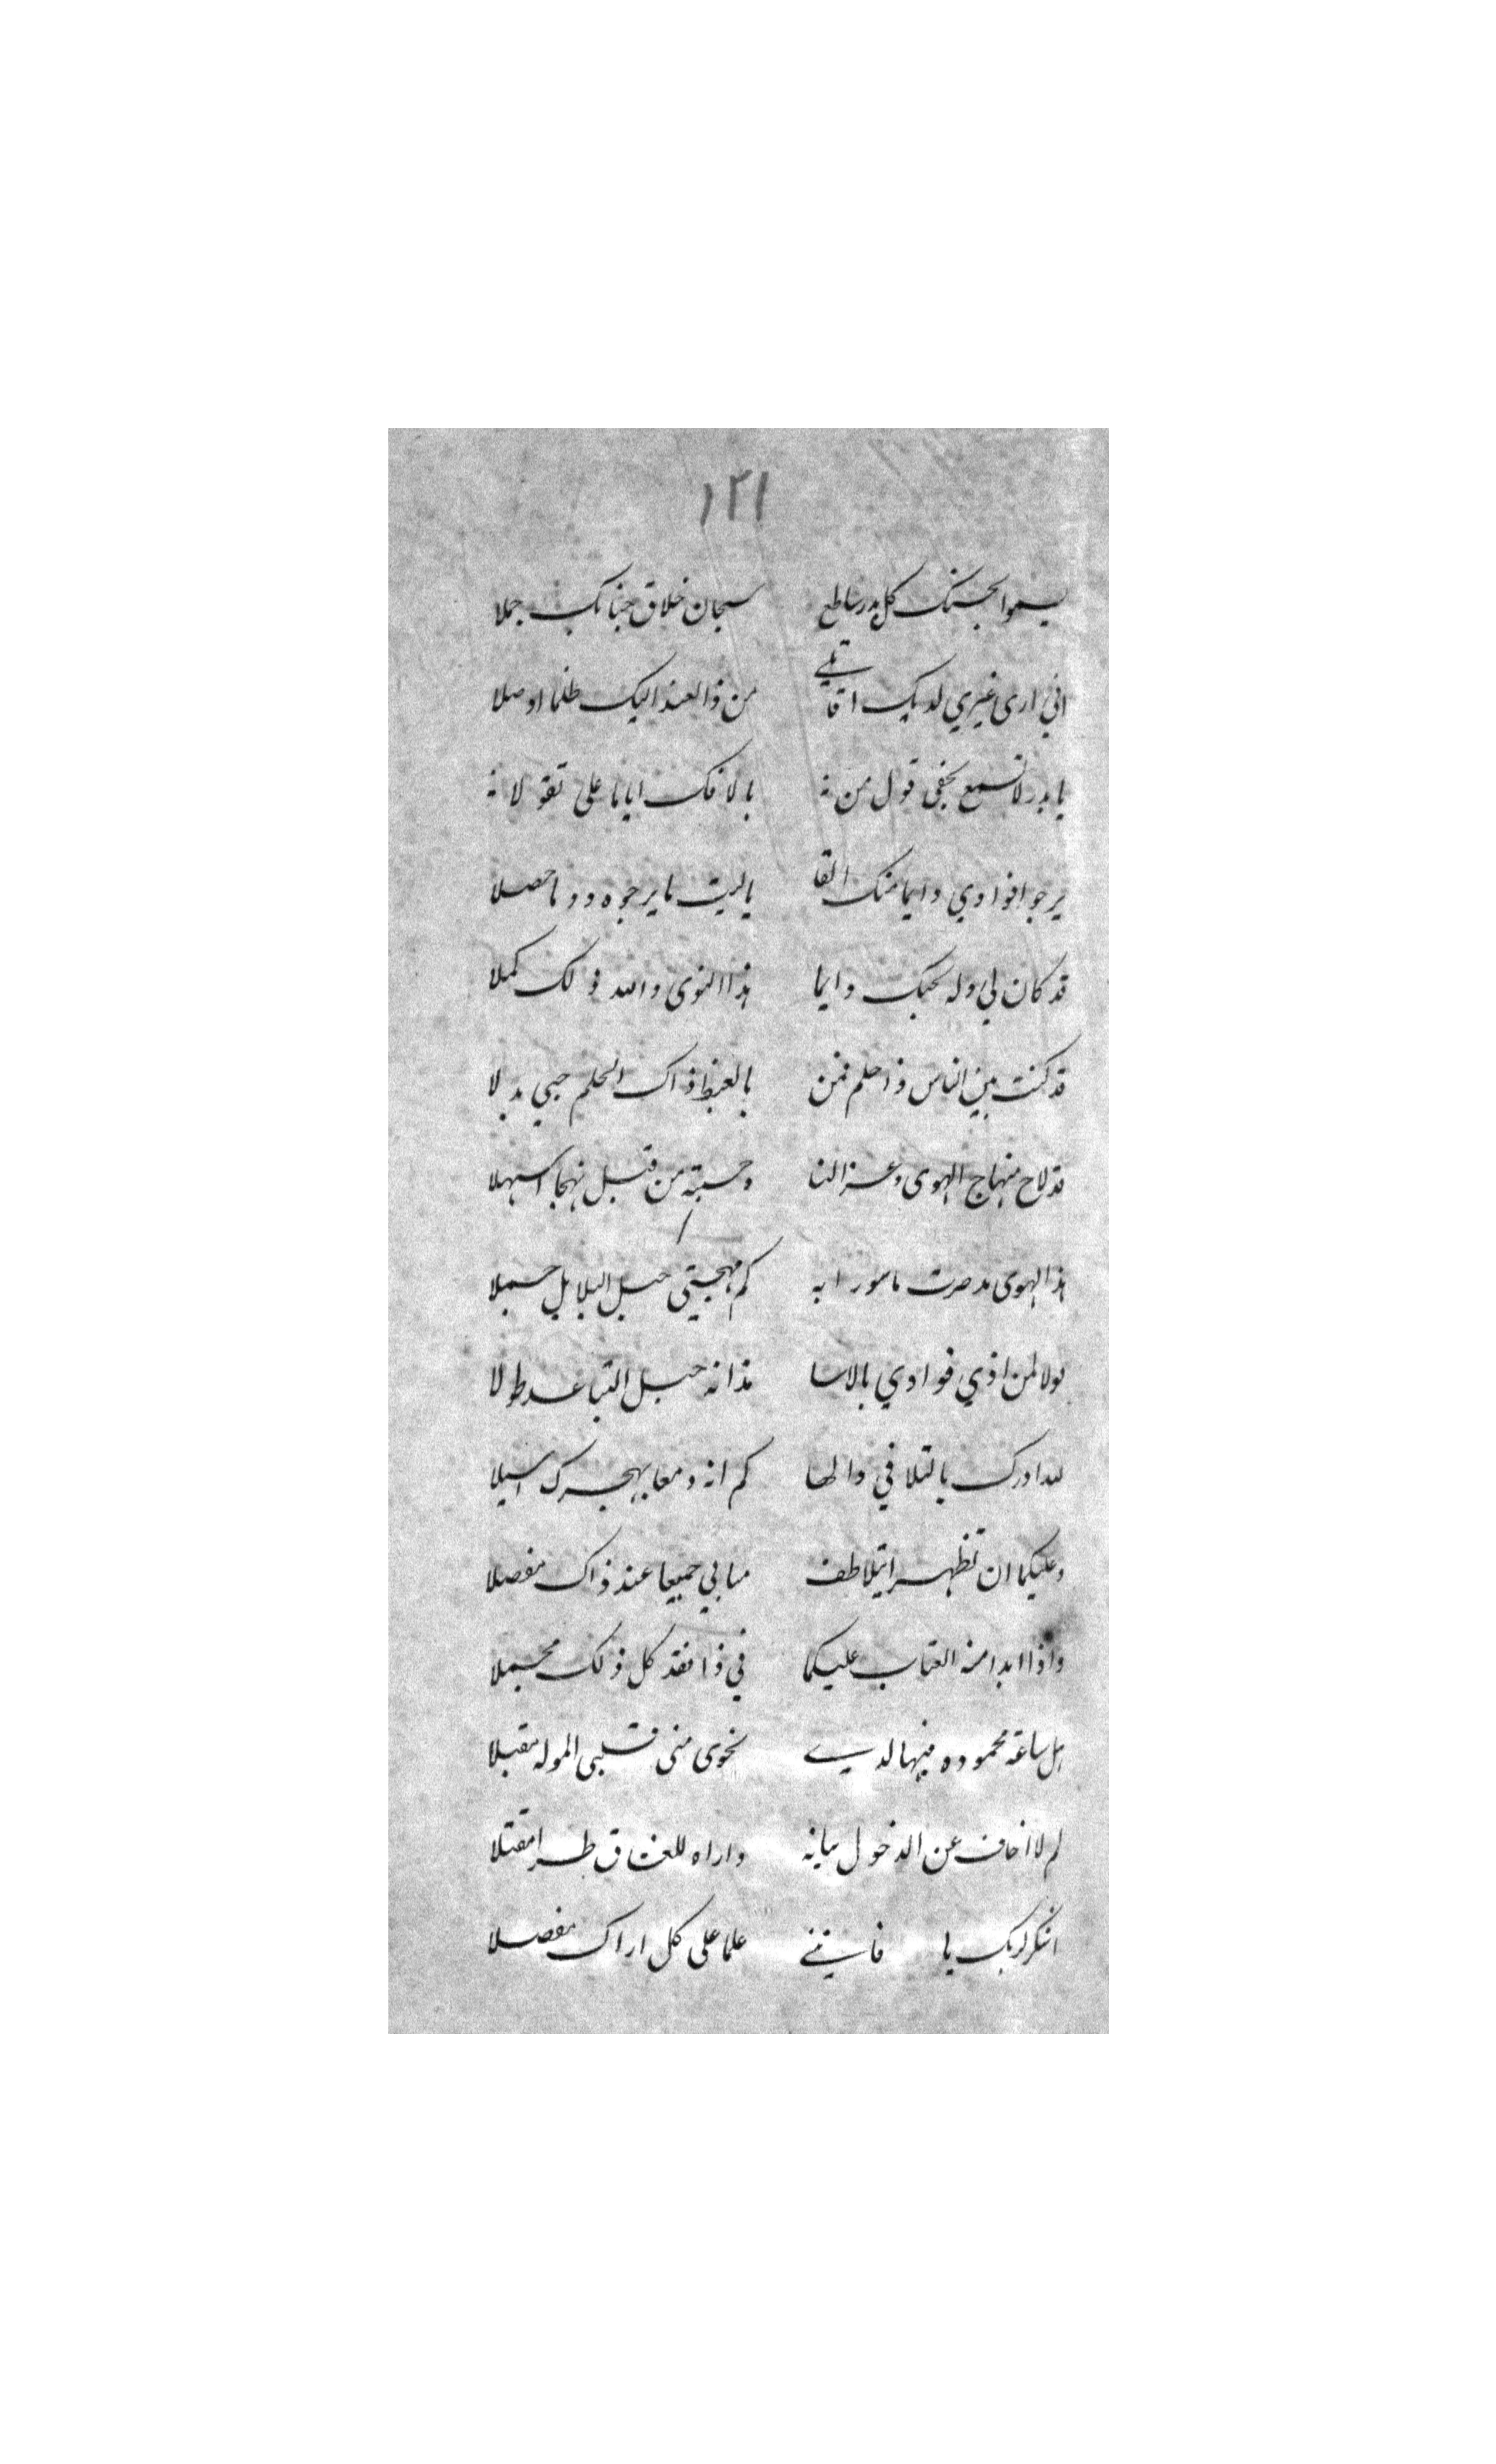 ١٢١
يسموا بحسنك كل بدر ساطع سبحان خلاق حبانك جملا
اني ارى غيري لديك اقاتلي من ذا لعند اليك ظلما اوصلا
يا بدر لا تسمع بحقي قول من بالافك ايانا على تقولا
يرجوا فوادي دايما منك القا ياليت ما يرجوه دوما حصلا
قد كان لي وله بحبك دايما هذا النوى والله ذلك كملا
قد كنت بين الناس ذا حلم فمن بالغيظ ذاك الحلم حبي بدلا
قد لاح منهاج الهوى وعز النا وحسبته من قبل نهجا اسهلا
هذا الهوى مد صرت ماسورا به كم مهجتي حبل البلابل حملا
قولا لمن اذي فوادي بالاسا مذ انه حبل التباعد طولا
لله ادرك بالتلافي والها كم انه دمعا بهجرك اسبلا
وعليكما ان تظهرا بتلاطف مابي جميعا عند ذاك مفصلا
واذا ابدا منه العتاب عليكما في ذا فقد كل ذلك مجملا
هل ساعة محموده فيها لدي نحوى منى قلبي الموله مقبلا
لم لا اخاف عن الدخول ببابه واراه للعشاق طرا مقتلا
اشكر لربك يا فانني علما على كل اراك مفصلا